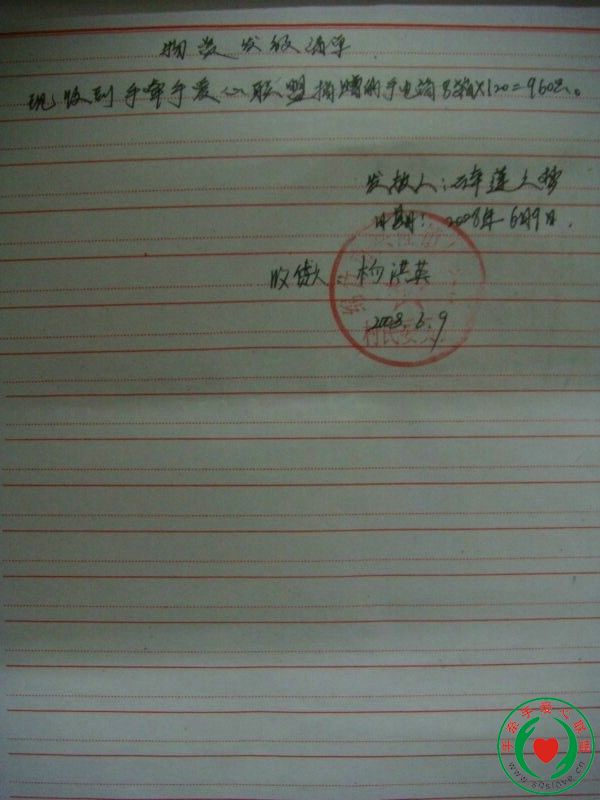 物资发放清单
现收到手牵手爱心联盟捐赠的手电筒8箱X120=960只。
发放人:
日期: 2008年6月9日.
收货人: 杨洪英
2008.6.9
村民委员
手牵手爱心联盟
www.sqslove.cn